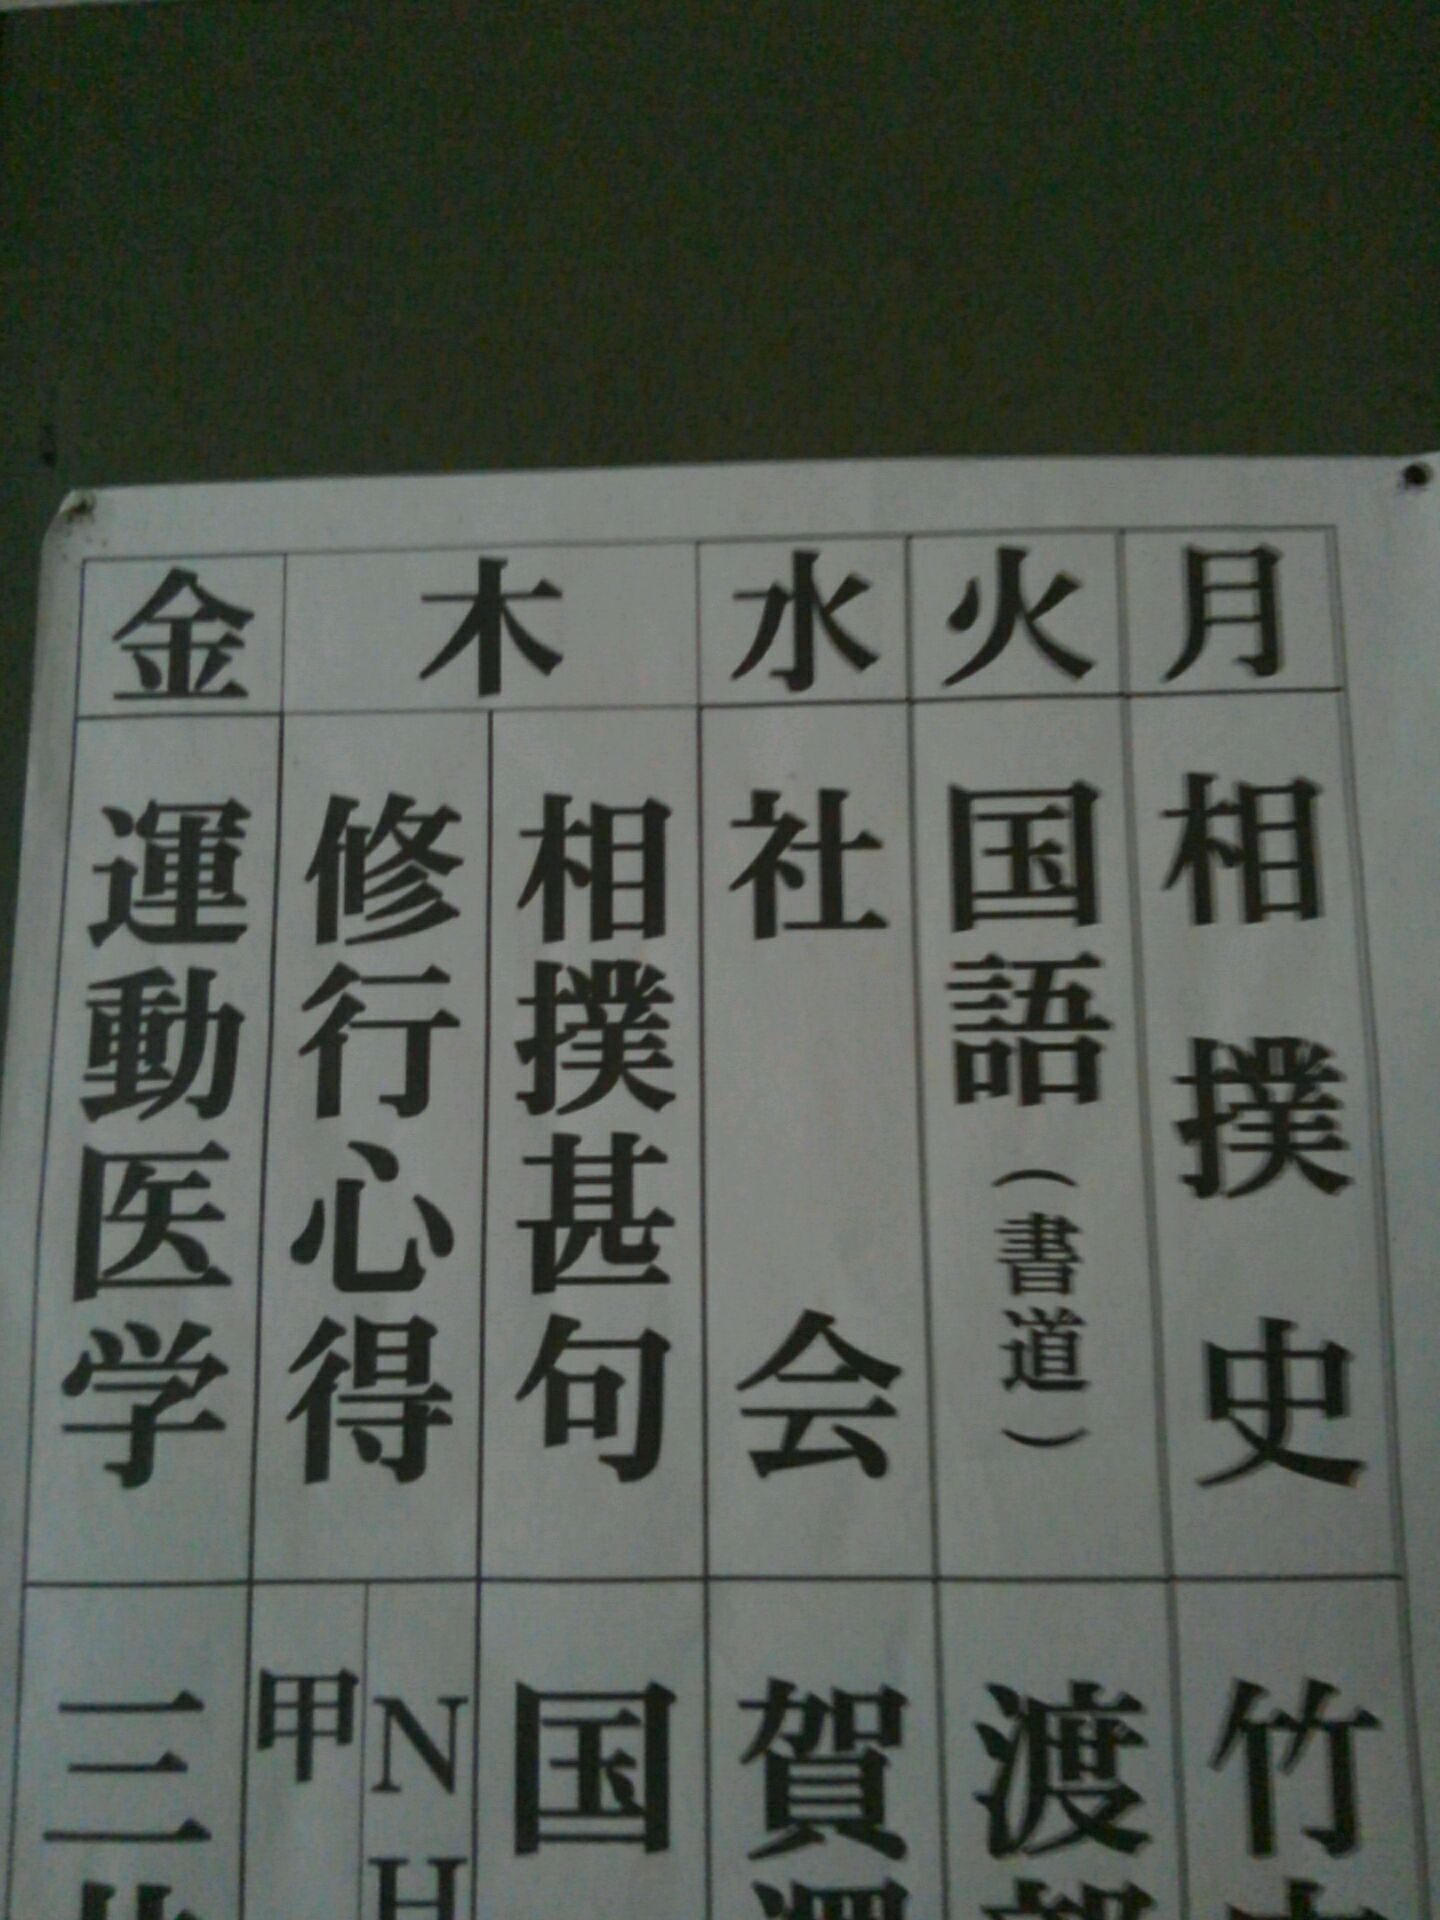 月
火
水
木
金
相撲史
国語(書道)
社会
相撲甚句
修行心得
運動医学
竹
渡
賀
国
NH
甲
三